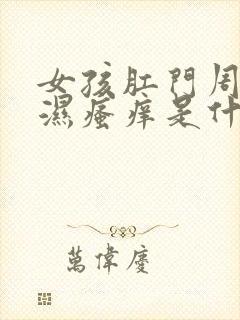 女孩肛門周
濕瘙痒是什
萬偉慶